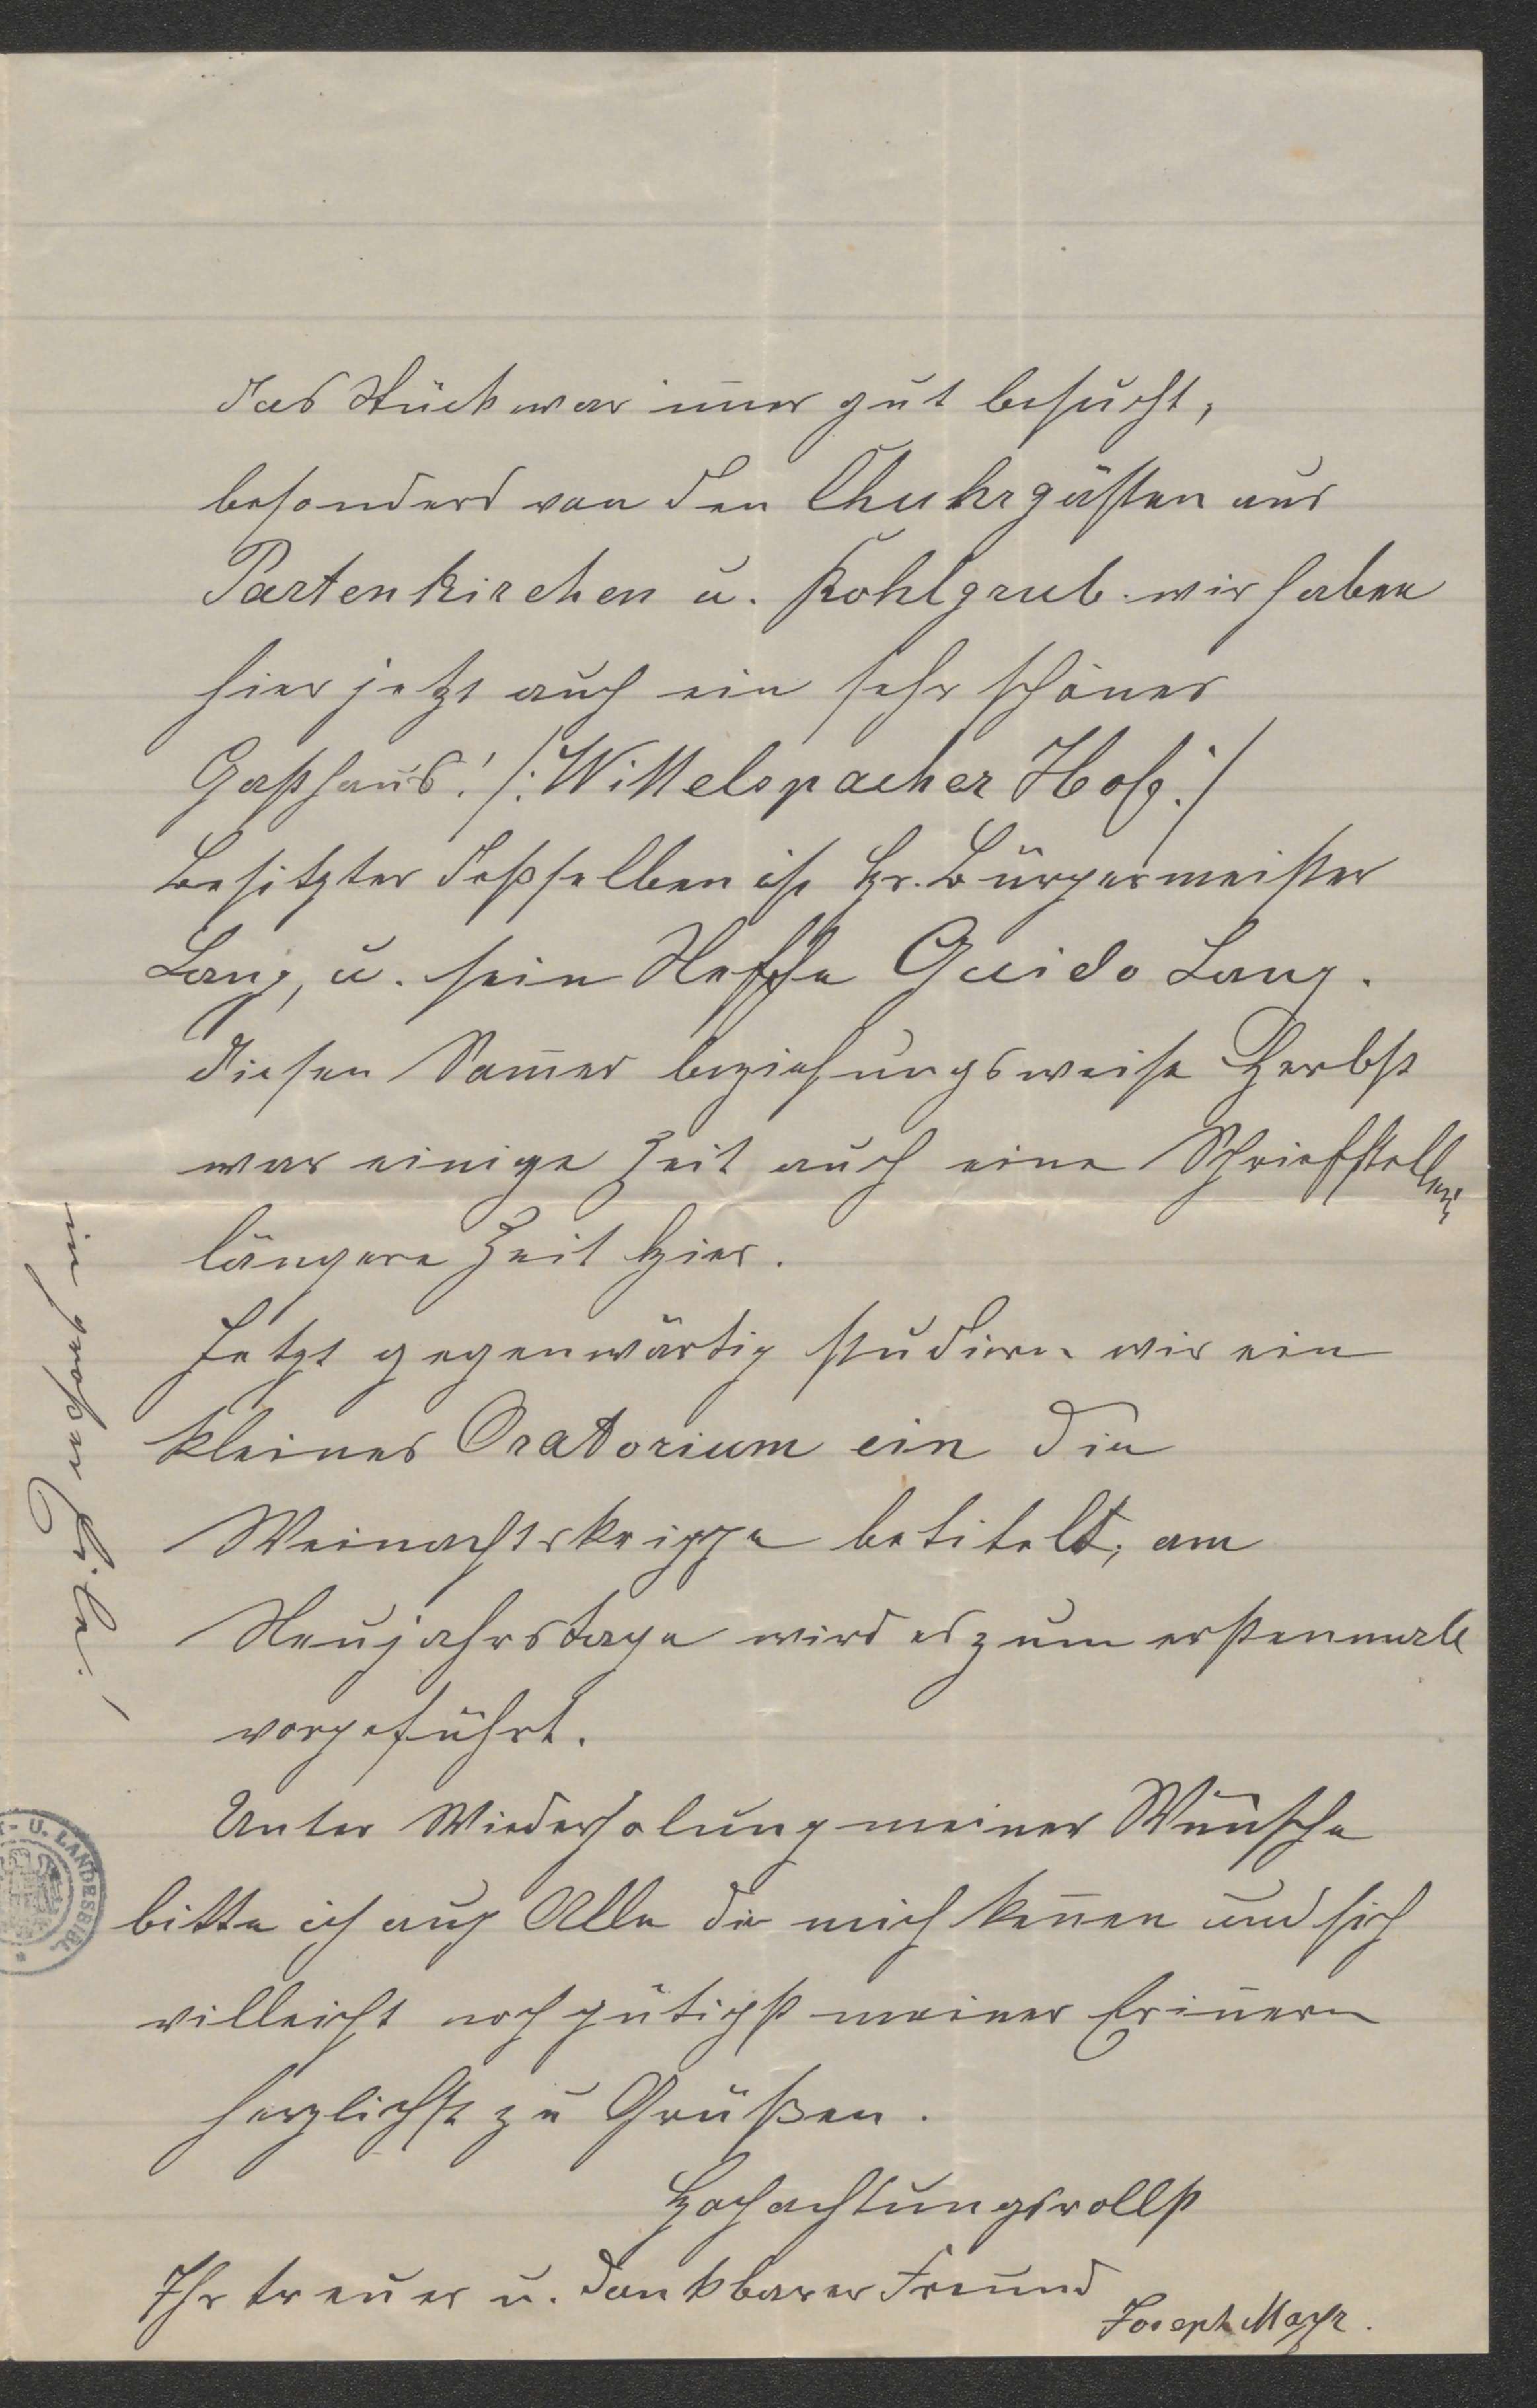 das Stück war im̅er gut besucht,
besonders von den Chuhrgästen aus
Partenkirchen u. Kohlgrub. wir haben
hier jetzt auch ein sehr schönes
Gasthaus! /: Wittelspacher Hof :/
Besitzter deßselben ist Hr. Bürgermeister
Lang, u. sein Neffe Guido Lang.
Diesen Som̅er beziehungsweise Herbst
war einige Zeit auch eine Schriefstellerin
längere Zeit hier.
Jetzt gegenwärtig studieren wir ein
kleines Oratorium ein die
Weinachtskrippe betitelt, am
Neujahrstage wird es zum erstenmale
vorgeführt.
Unter Wiederholung meiner Wünsche
bitte ich auch Alle die mich ken̅en und sich
villeicht noch gütigst meiner Erin̅ern
herzlichst zu Grüßen.
Hochachtungsvollst
Ihr treuer u. dankbarer Freund
Joseph Mayr.
U. LANDESBIBL.